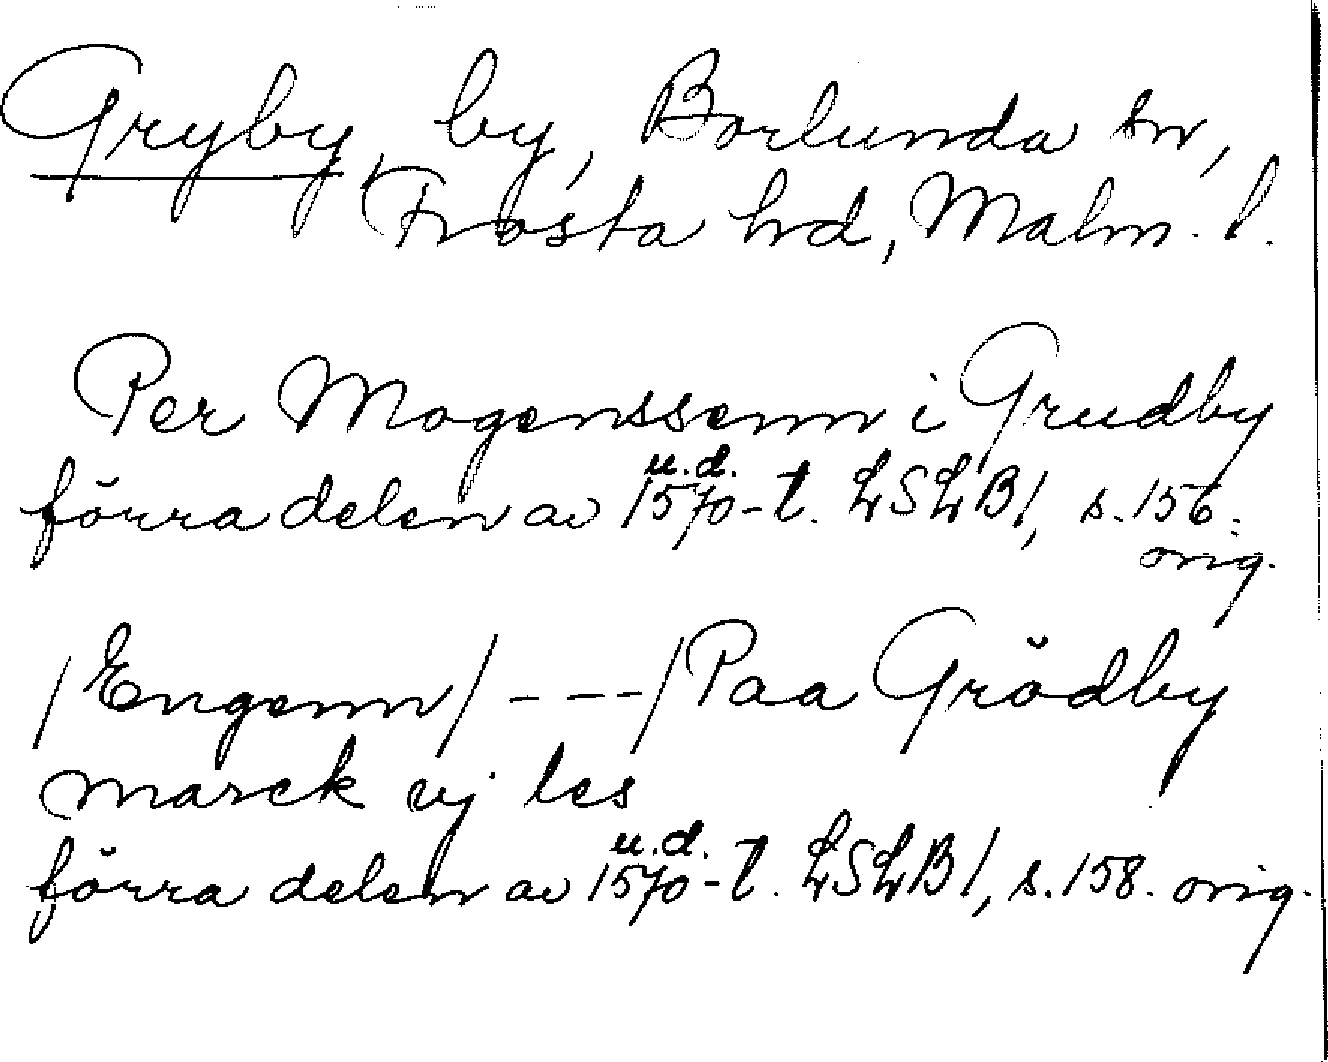 Gryby, by, Borlunda sn,
Frosta hd, Malm. l.
Per Mogenssenn i Grudby
u.d.
förra delen av 1570-t. LSLB1, s. 156.
orig.
/Engenn/ - - - /Paa Grödby
marck vj les
u.d.
förra delen av 1570-t. LSLB1, s. 158. orig.